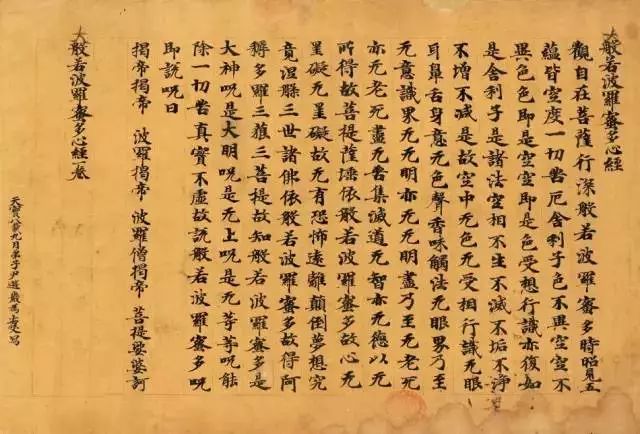 大般若波羅蜜多心經
觀自在菩薩行深般若波羅蜜多時昭見五
蘊皆空度一切苦厄舍利子色不異空空不
異色色即是空空即是色受想行識亦復如
是舍利子是諸法空相不生不滅不垢不淨
不增不減是故空中无色无受相行識无眼
耳鼻舌身意无色聲香味觸法无眼界乃至
无意識界无无明亦无无明盡乃至无老死
亦无老死盡无苦集滅道无智亦无德以无
所得故菩提薩埵依般若波羅蜜多故心无
罣礙无罣礙故无有恐怖遠離顛倒夢想究
竟涅槃三世諸佛依般若波羅蜜多故得阿
耨多羅三藐三菩提故知般若波羅蜜多是
大神呪是大明呪是无上呪是无等等呪能
除一切苦真實不虛故說般若波羅蜜多呪
即說呪曰
揭帝揭帝 波羅揭帝 波羅僧揭帝 菩提娑婆訶
大般若波羅蜜多心經一卷
天寶八載九月弟子尹遊巖